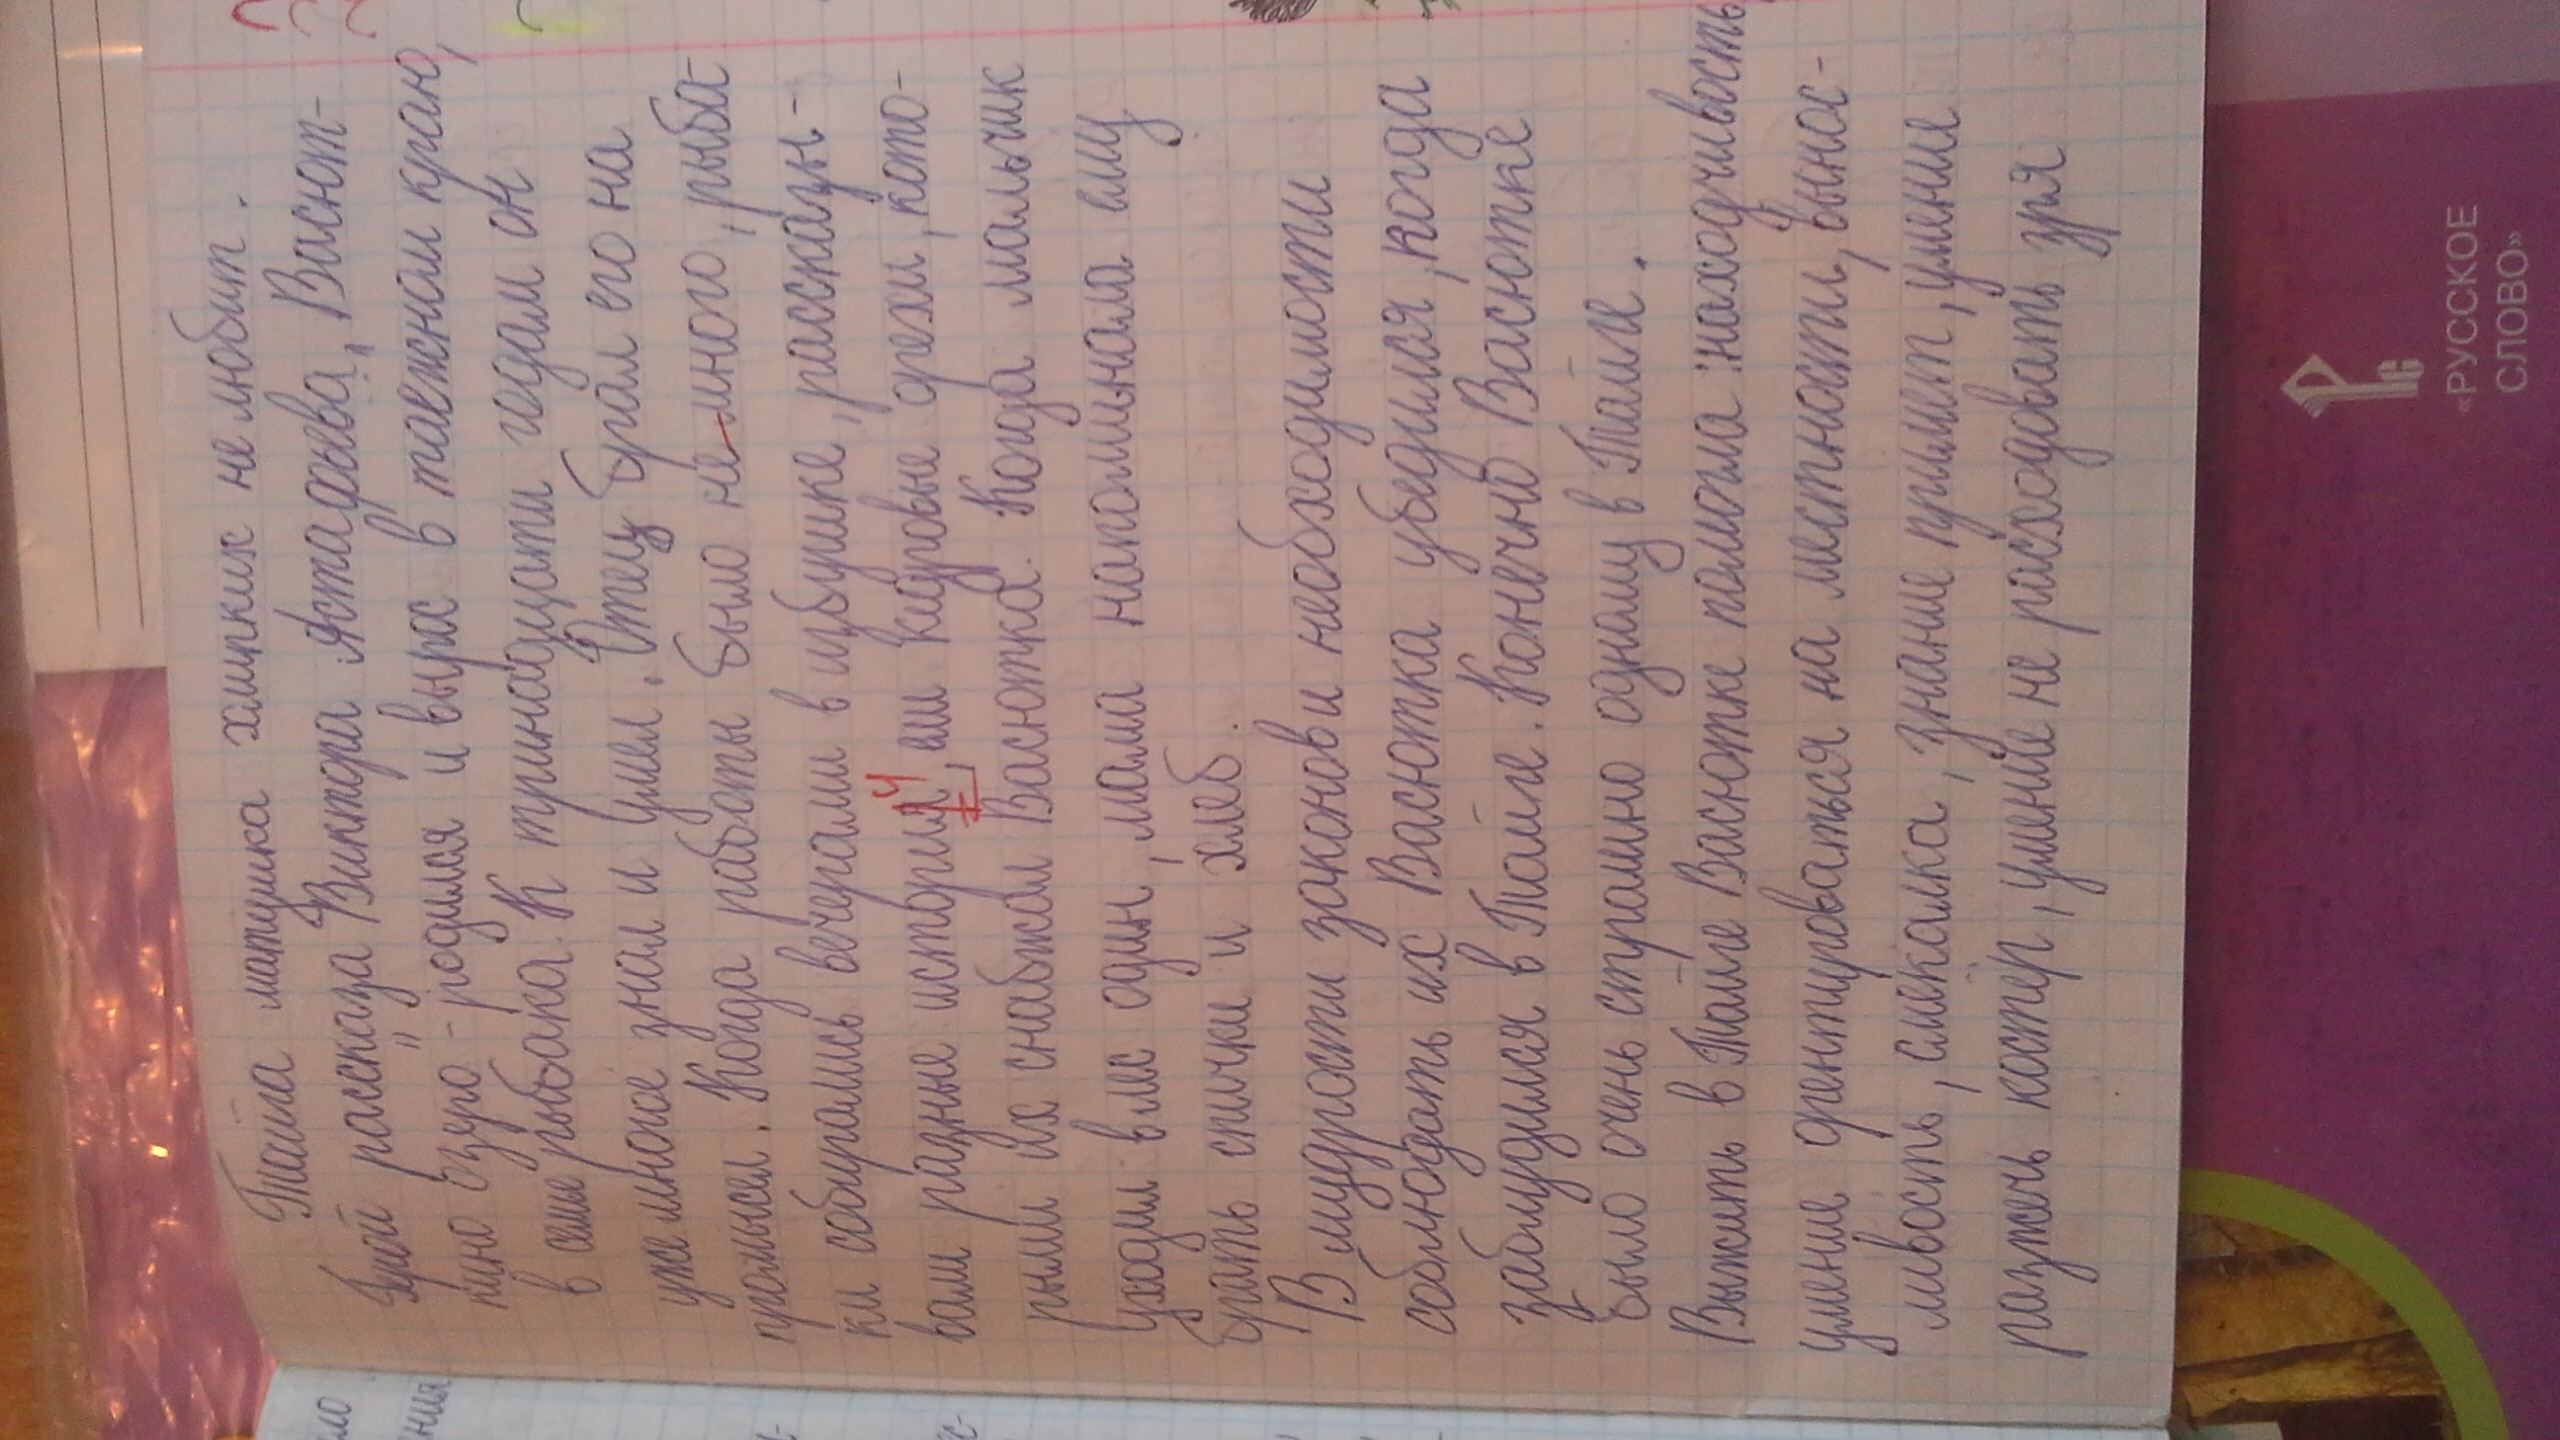 Тайга матушка хлипких не любит.
Герой рассказа Виктора Астафьева „Васют-
кино озеро" - родился и вырос в таежном краю,
в семье рыбака. К тринадцати годам он
уже многое знал и умел. Отец брал его на
промысел. Когда работы было не много, рыба-
ки собирались вечерами в избушке, рассказы-
вали разные истории, ели кедровые орехи, кото-
рыми их снабжал Васютка. Когда мальчик
уходил в лес один, мама напоминала ему
брать спички и хлеб.
В мудрости законов и необходимости
соблюдать их Васютка убедился, когда
заблудился в Тайге. Конечно Васютке
было очень страшно одному в Тайге.
Выжить в Тайге Васютке помогла: находчивость,
умение орентироваться на местности, вынос-
ливость, смекалка, знание примет, умение
разжечь костёр, умение не расходовать зря
«РУССКОЕ
СЛОВО»